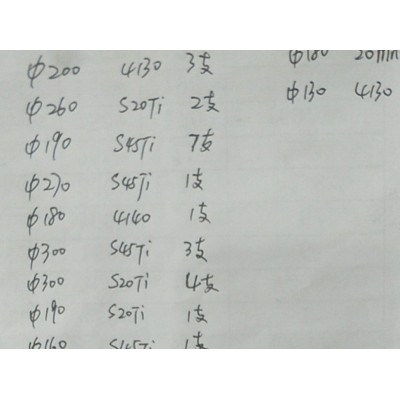 φ200 4130 3支
φ260 S20Ti 2支
φ190 S45Ti 7支
φ270 S45Ti 1支
φ180 4140 1支
φ300 S45Ti 3支
φ300 S20Ti 4支
φ190 S20Ti 1支
φ160 S45Ti 1支
φ180 20Mn
φ130 4130